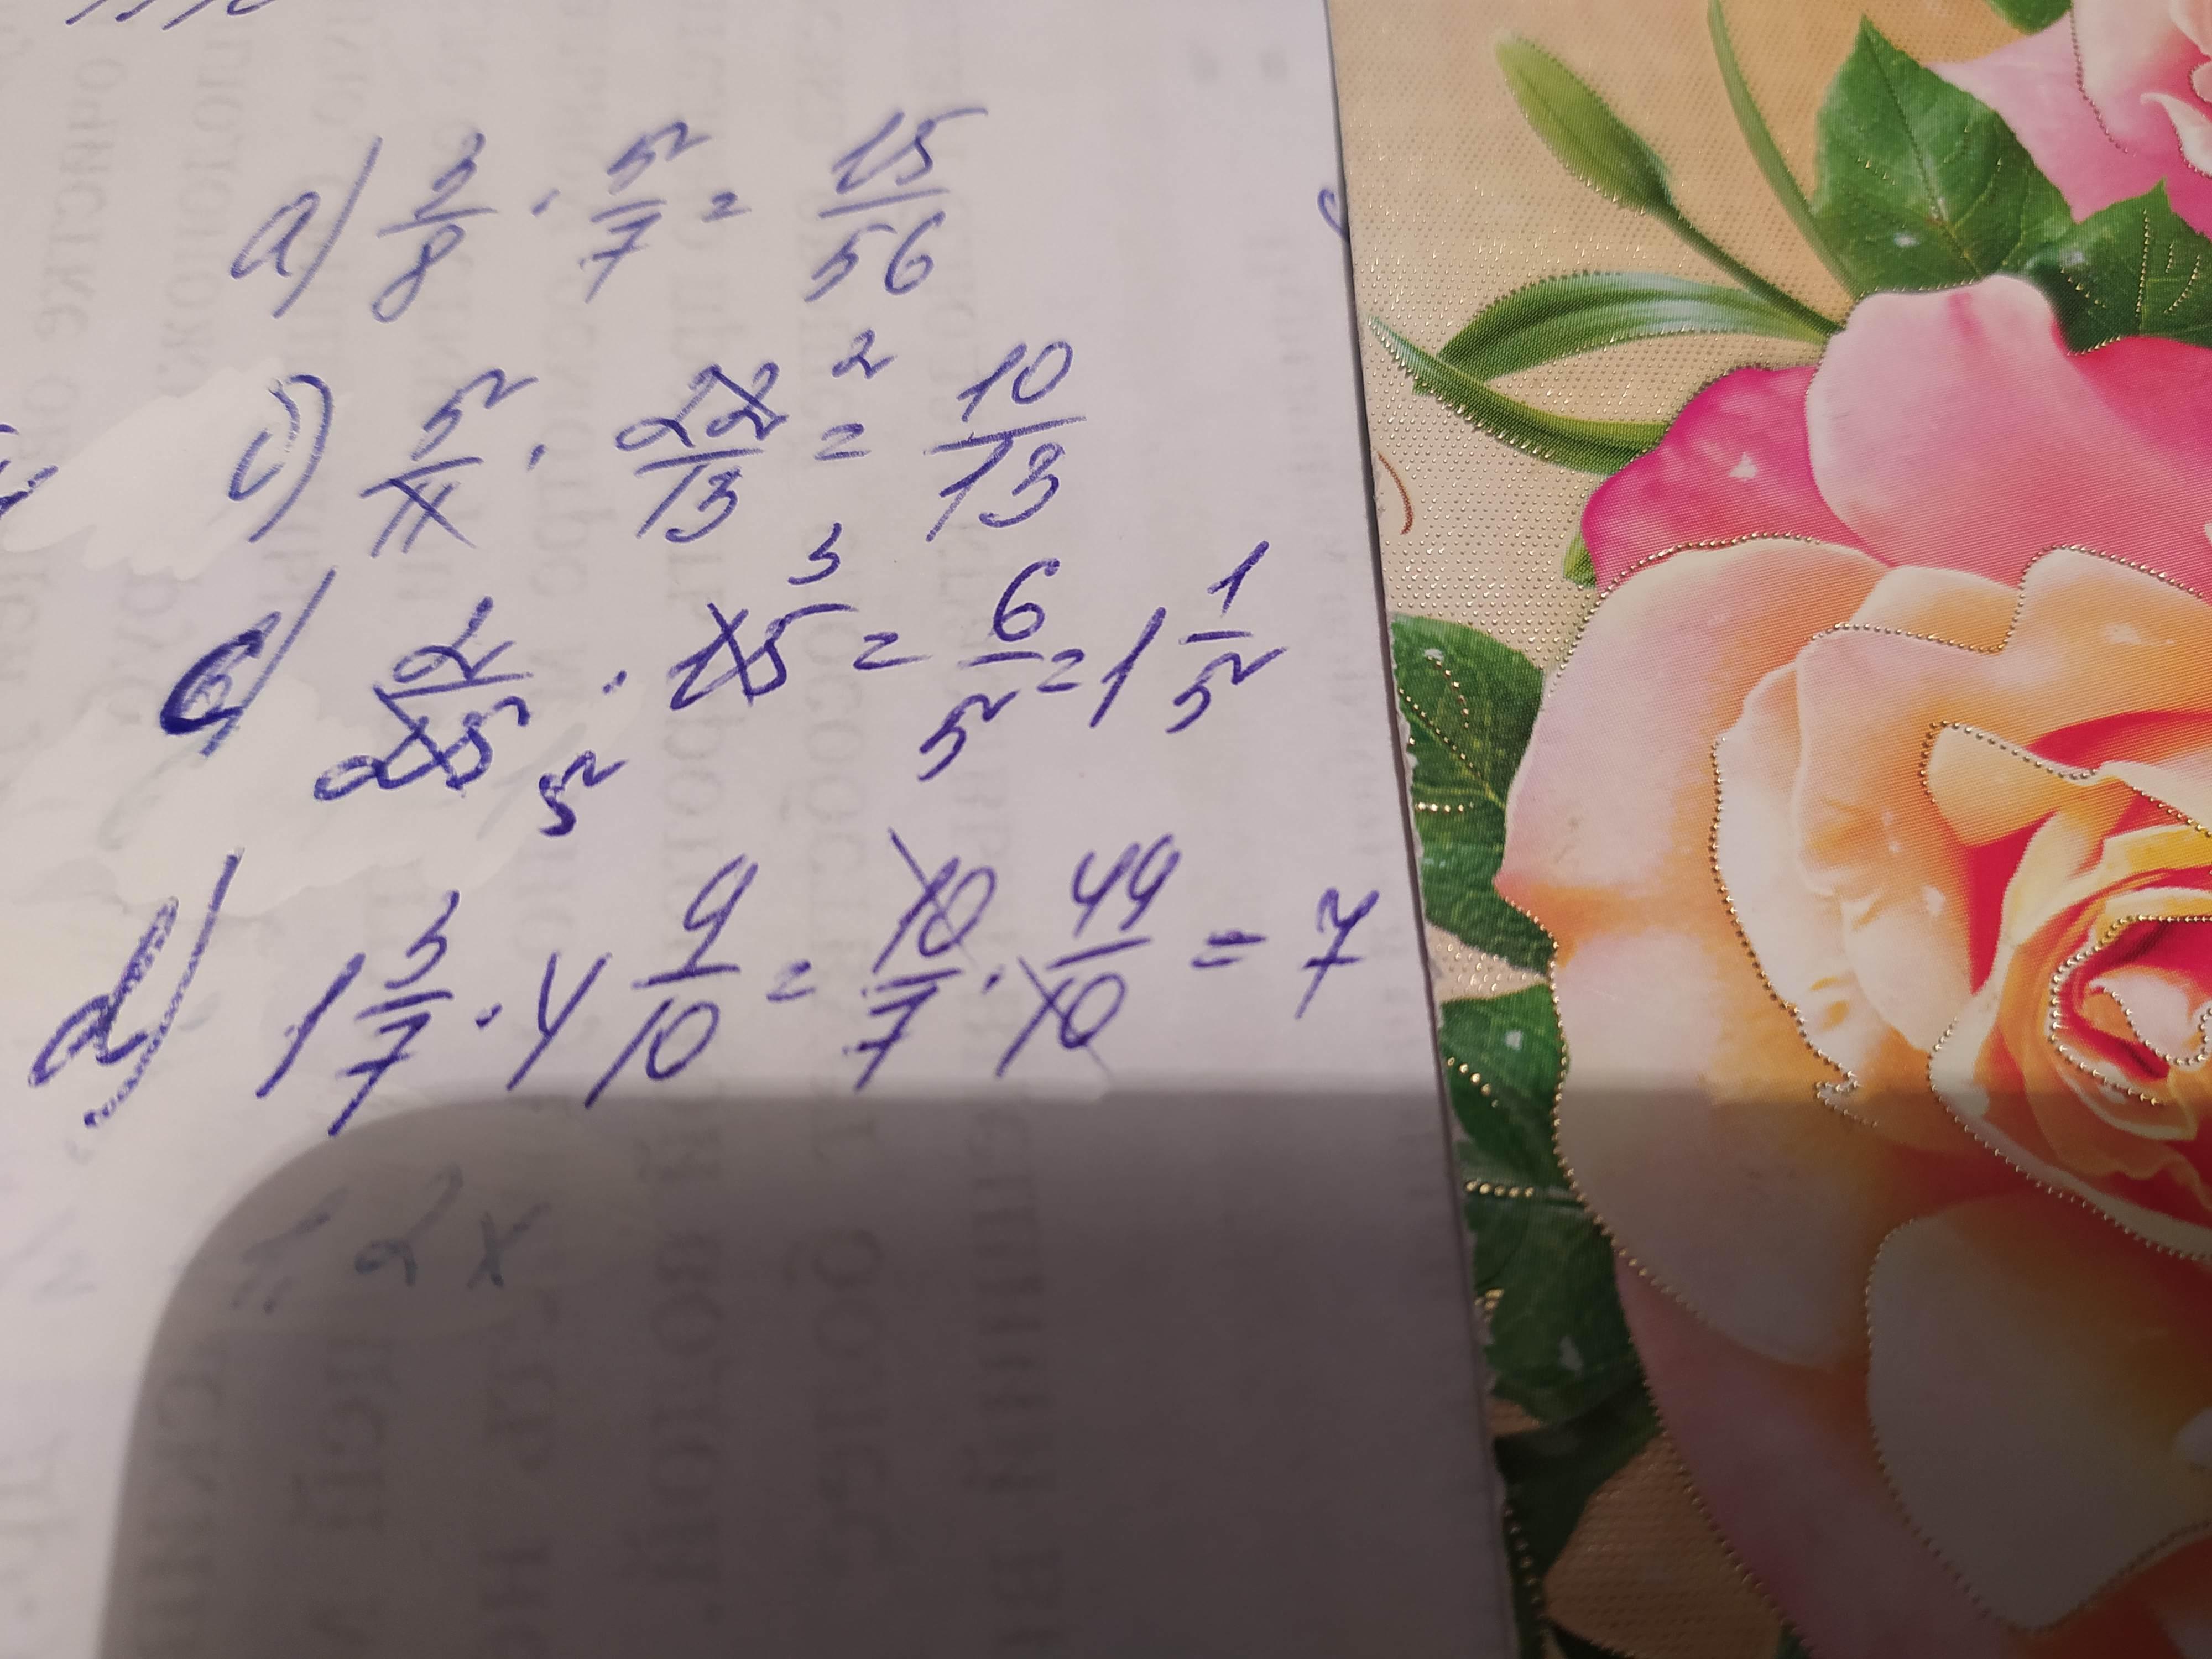 a) 3/8 · 5/7 = 15/56
c) 5/11 · 22/13 2 = 10/13
c) 2/25 5 · 15 3 = 6/5 = 1 1/5
d) 1 3/7 · 4 9/10 = 10/7 · 49/10 = 7
= 2x